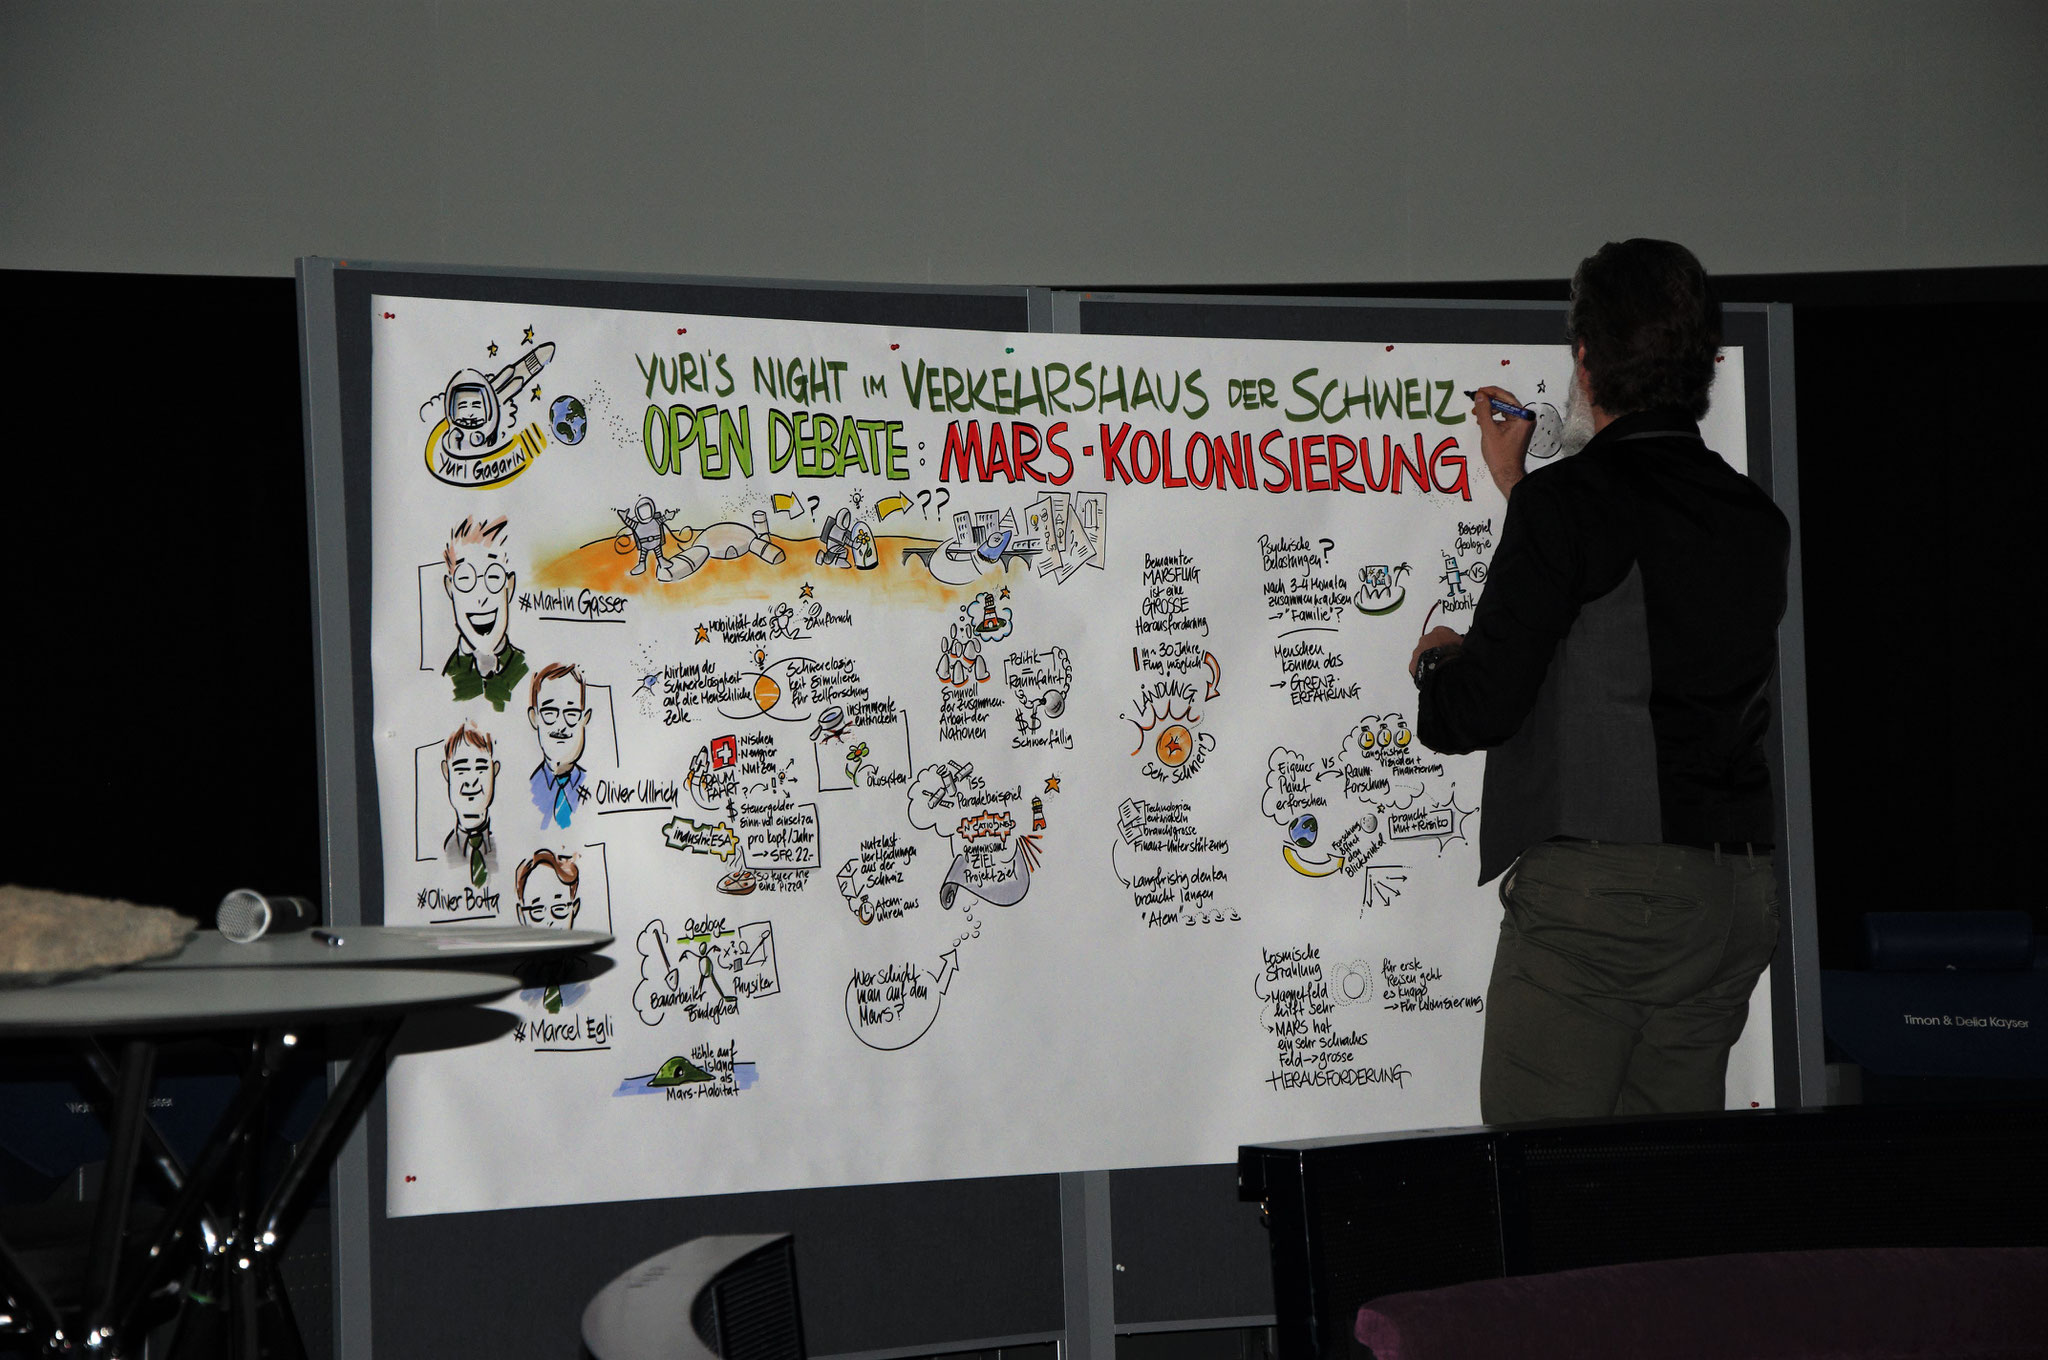 YURI'S NIGHT IM VERKEHRSHAUS DER SCHWEIZ
OPEN DEBATE: MARS-KOLONISIERUNG
Yuri Gagarin
? ??
#Martin Gasser
#Oliver Ullrich
#Oliver Botta
#Marcel Egli
Mobilität des
Menschen
Aufbruch
Wirkung der
Schwerelosigkeit
auf die Menschliche
Zelle
Schwerelosig-
keit Simulieren
für Zellforschung
instrumente
entwickeln
Ökosystem
RAUM
FAHRT
·Nischen
·Neugier
·Nutzen
?
$ Steuergelder
Sinnvoll einsetzen
pro Kopf/Jahr
→ SFR. 22.-
industrie ESA
So teuer wie
eine Pizza
Geologe
Bauarbeiter
Physiker
Höhle auf
Island
als
Mars-Habitat
Sinnvoll
der Zusammen-
Arbeit der
Nationen
Politik
=
Raumfahrt
$ $
Schwerfällig
ISS
Paradebeispiel
gemeinsame
ZIEL
Projektziel
Nutzlast
aus der
Schweiz
Atom-
uhren aus
Wer schickt
man auf den
Mars?
Bemannter
MARSFLUG
ist eine
GROSSE
Herausforderung
in ~ 30 Jahre
Flug möglich
LANDUNG
Sehr Schwierig
Technologien
entwickeln
braucht grosse
Finanz-Unterstützung
Langfristig denken
braucht langen
"Atem"
Psychische
Belastungen?
Nach 3-4 Monaten
zusammenkrachen
→ "Familie"?
Menschen
können das
→ GRENZ-
ERFAHRUNG
Beispiel
Geologie
VS
Robotik
Eigener
Planet
erforschen
VS
Raum-
forschung
Langfristige
Visionen +
Finanzierung
braucht
Mut + Risiko
Forschung
öffnet
den
Blickwinkel
Kosmische
Strahlung
→ Magnetfeld
hilft sehr
→ MARS hat
ein sehr schwaches
Feld → grosse
HERAUSFORDERUNG
für erste
Reisen geht
es knapp
→ Für Kolonisierung
Timon & Delia Kayser